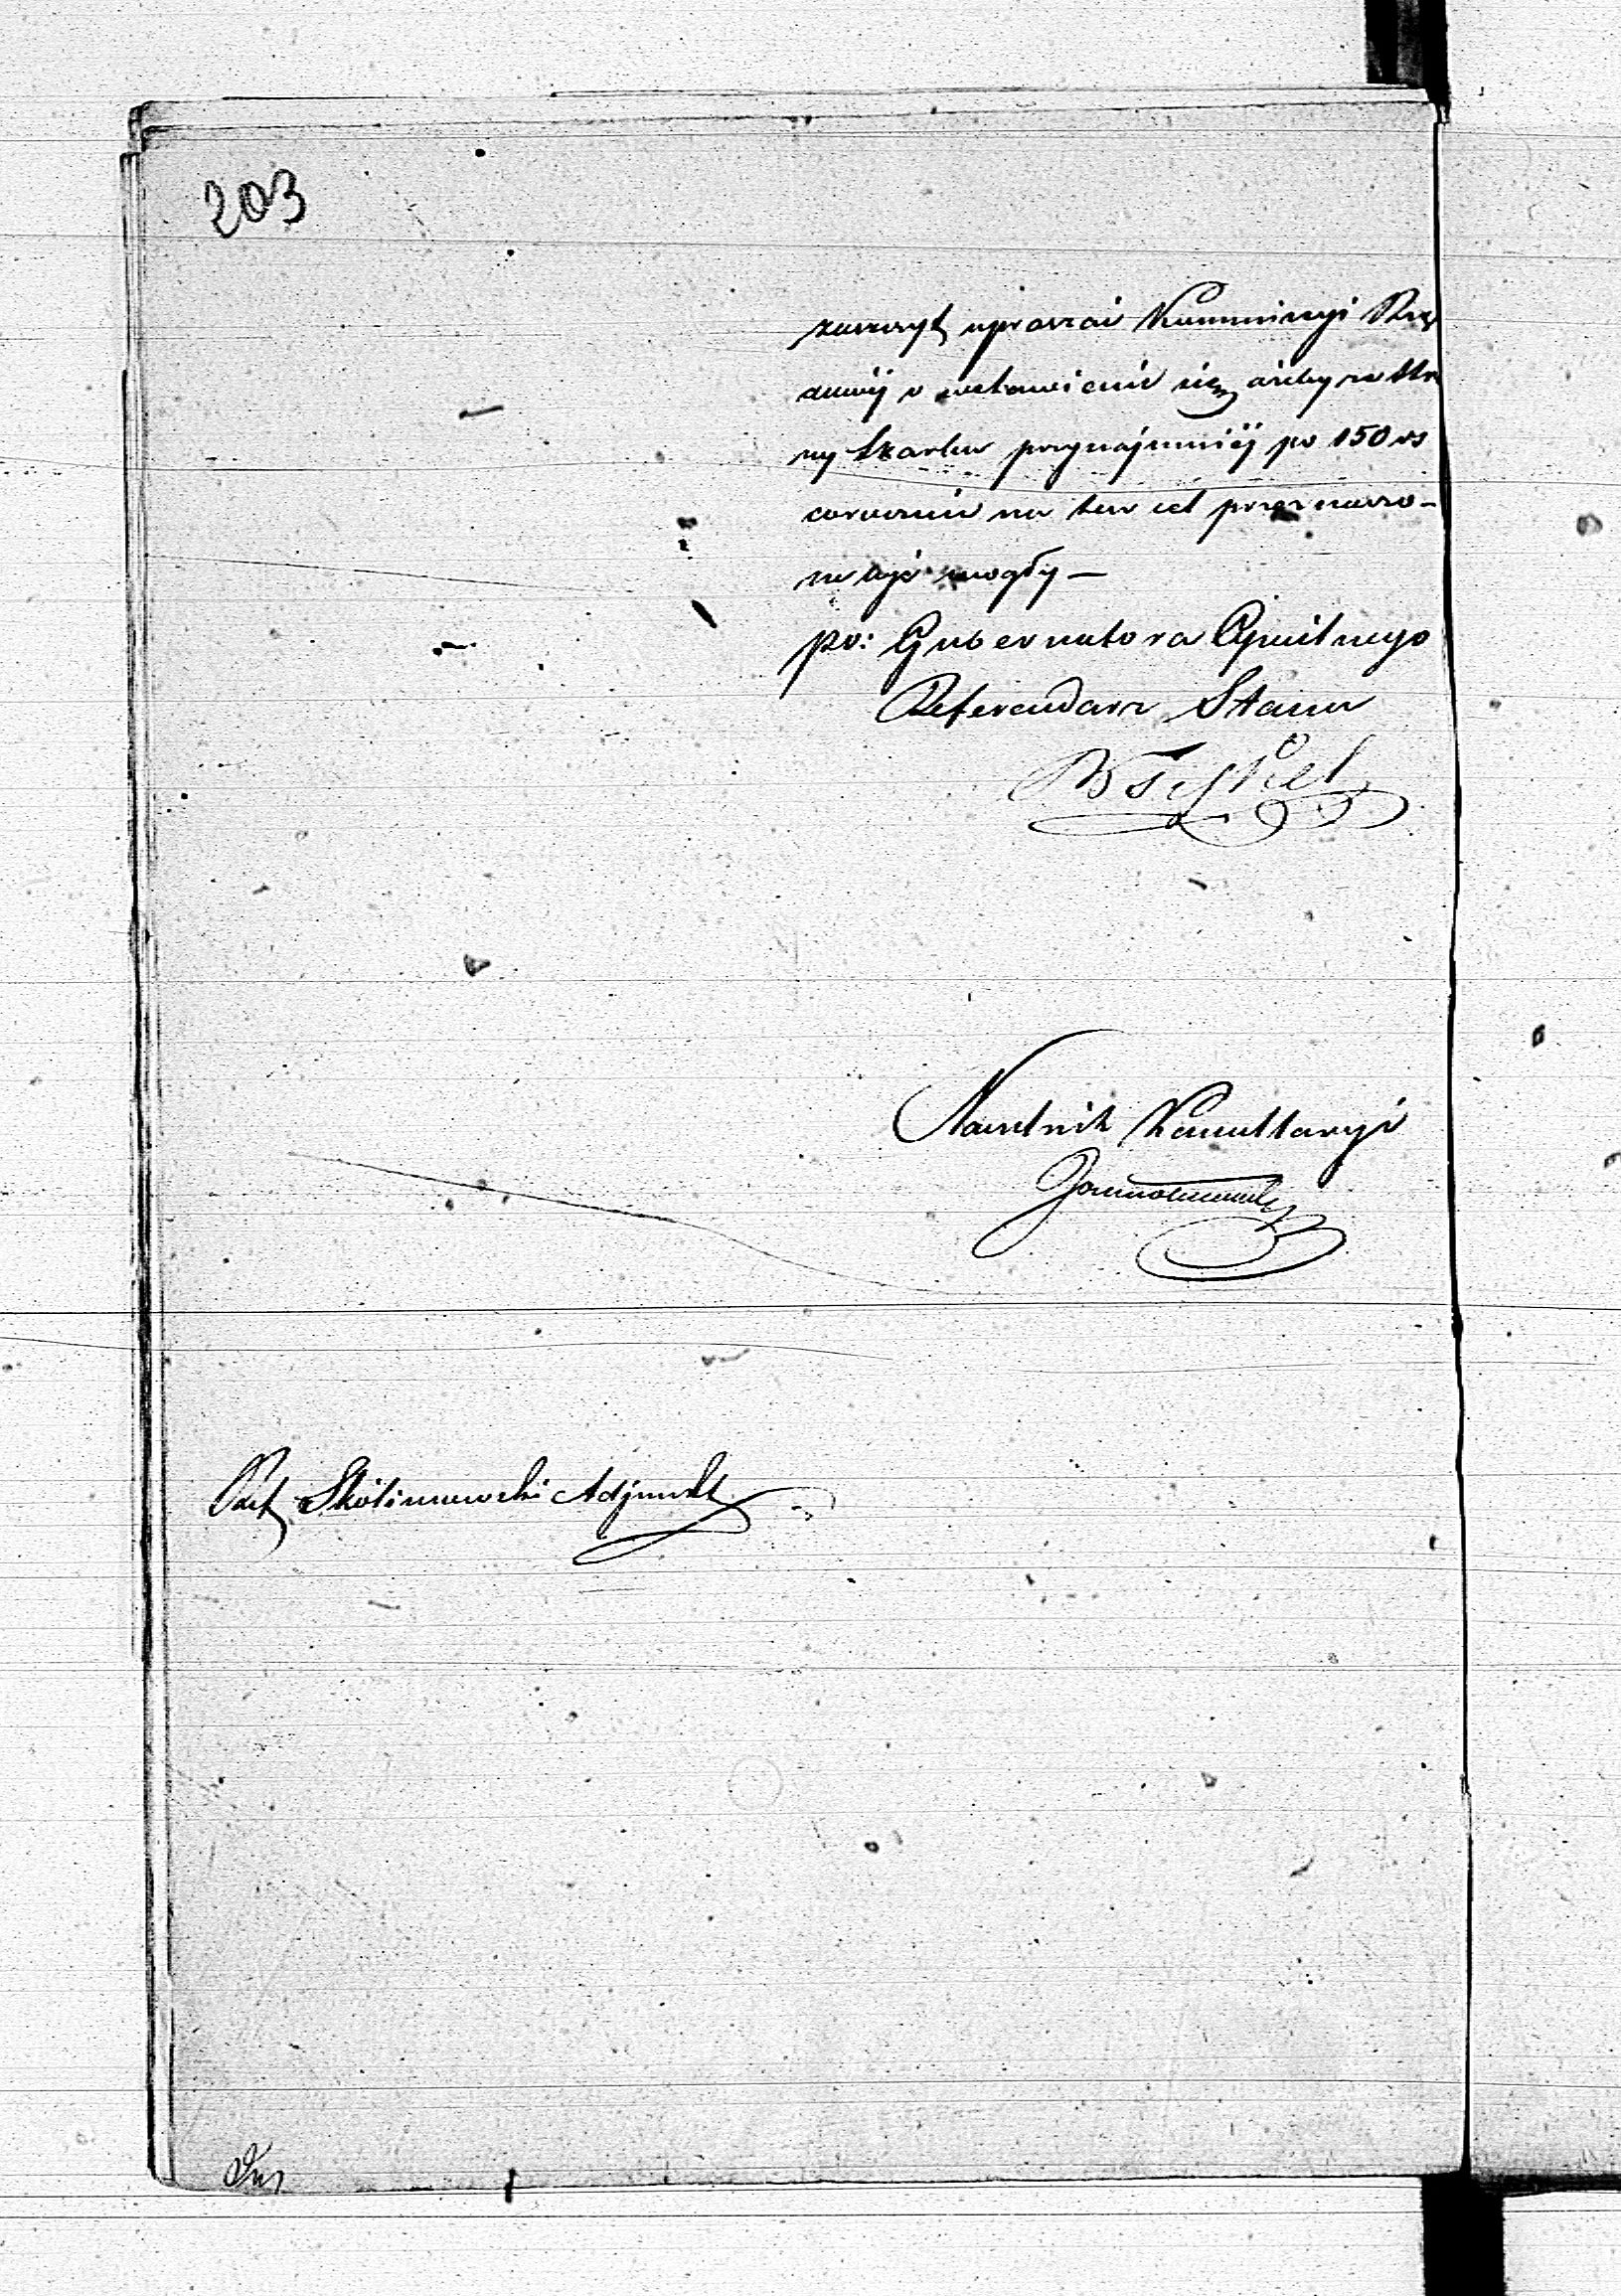 203
zaszczyt upraszać Kommissyi Rzą
dowéj o wstawienie się ażeby ze stro
ny Skarbu przynajmniéj po 150 rs
corocznie na ten cel przeznaczo-
ne być mogły —
po: Gubernatora Cywilnego
Referendarz Stanu
Naczelnik Kancellaryi
Skolimowski Adjunkt